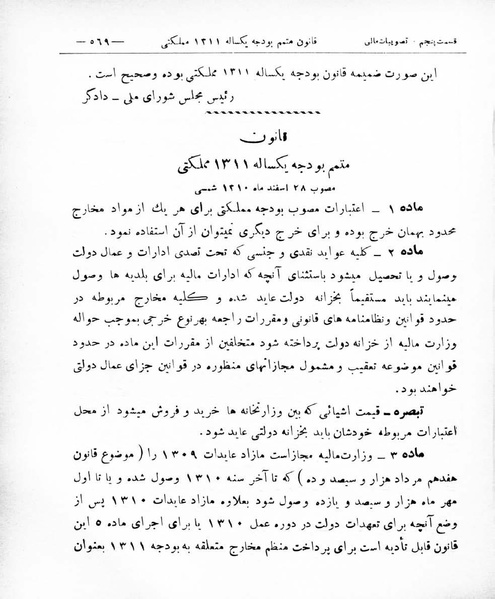 قسمت پنجم - تصویبات مالی
قانون متمم بودجه یکساله ۱۳۱۱ مملکتی
— ۵۶۹ —
این صورت ضمیمه قانون بودجه یکساله ۱۳۱۱ مملکتی بوده وصحیح است .
رئیس مجلس شورای ملی ــ دادگر
قانون
متمم بودجه یکساله ۱۳۱۱ مملکتی
مصوب ۲۸ اسفند ماه ۱۳۱۰ شمسی
ماده ۱ ــ اعتبارات مصوب بودجه مملکتی برای هر یك از مواد مخارج
محدود بهمان خرج بوده و برای خرج دیگری نمیتوان از آن استفاده نمود.
ماده ۲ ــ کلیه عواید نقدی و جنسی که تحت تصدی ادارات و عمال دولت
وصول و یا تحصیل میشود باستثنای آنچه که ادارات مالیه برای بلدیه ها وصول
مینمایند باید مستقیماً بخزانه دولت عاید شده و کلیه مخارج مربوطه در
حدود قوانین ونظامنامه های قانونی ومقررات راجعه بهرنوع خرجی بموجب حواله
وزارت مالیه از خزانه دولت پرداخته شود متخلفین از مقررات این ماده در حدود
قوانین موضوعه تعقیب و مشمول مجازاتهای منظوره در قوانین جزای عمال دولتی
خواهند بود.
تبصره ــ قیمت اشیائی که بین وزارتخانه ها خرید و فروش میشود از محل
اعتبارات مربوطه خودشان باید بخزانه دولتی عاید شود.
ماده ۳ ــ وزارت مالیه مجازاست مازاد عایدات ۱۳۰۹ را ( موضوع قانون
هفدهم مرداد هزار و سیصد و ده ) که تا آخر سنه ۱۳۱۰ وصول شده و یا تا اول
مهر ماه هزار و سیصد و یازده وصول شود بعلاوه مازاد عایدات ۱۳۱۰ پس از
وضع آنچه برای تعهدات دولت در دوره عمل ۱۳۱۰ یا برای اجرای ماده ۵ این
قانون قابل تأدیه است برای پرداخت منظم مخارج متعلقه به بودجه ۱۳۱۱ بعنوان